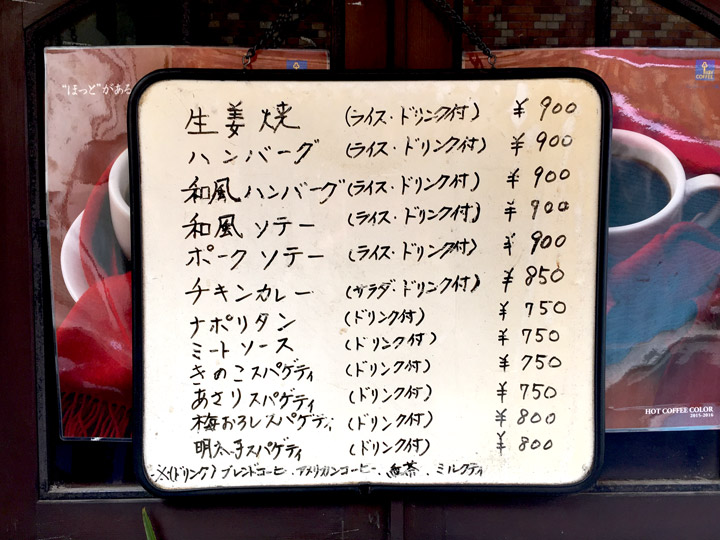 "ほっと"がある
COFFEE
生姜焼 (ライス・ドリンク付) ¥900
ハンバーグ (ライス・ドリンク付) ¥900
和風ハンバーグ (ライス・ドリンク付) ¥900
和風ソテー (ライス・ドリンク付) ¥900
ポークソテー (ライス・ドリンク付) ¥900
チキンカレー (サラダ・ドリンク付) ¥850
ナポリタン (ドリンク付) ¥750
ミートソース (ドリンク付) ¥750
きのこスパゲティ (ドリンク付) ¥750
あさりスパゲティ (ドリンク付) ¥750
梅おろしスパゲティ (ドリンク付) ¥800
明太子スパゲティ (ドリンク付) ¥800
※(ドリンク) ブレンドコーヒ、アメリカンコーヒー、紅茶、ミルクティ
HOT COFFEE COLOR
2015-2016